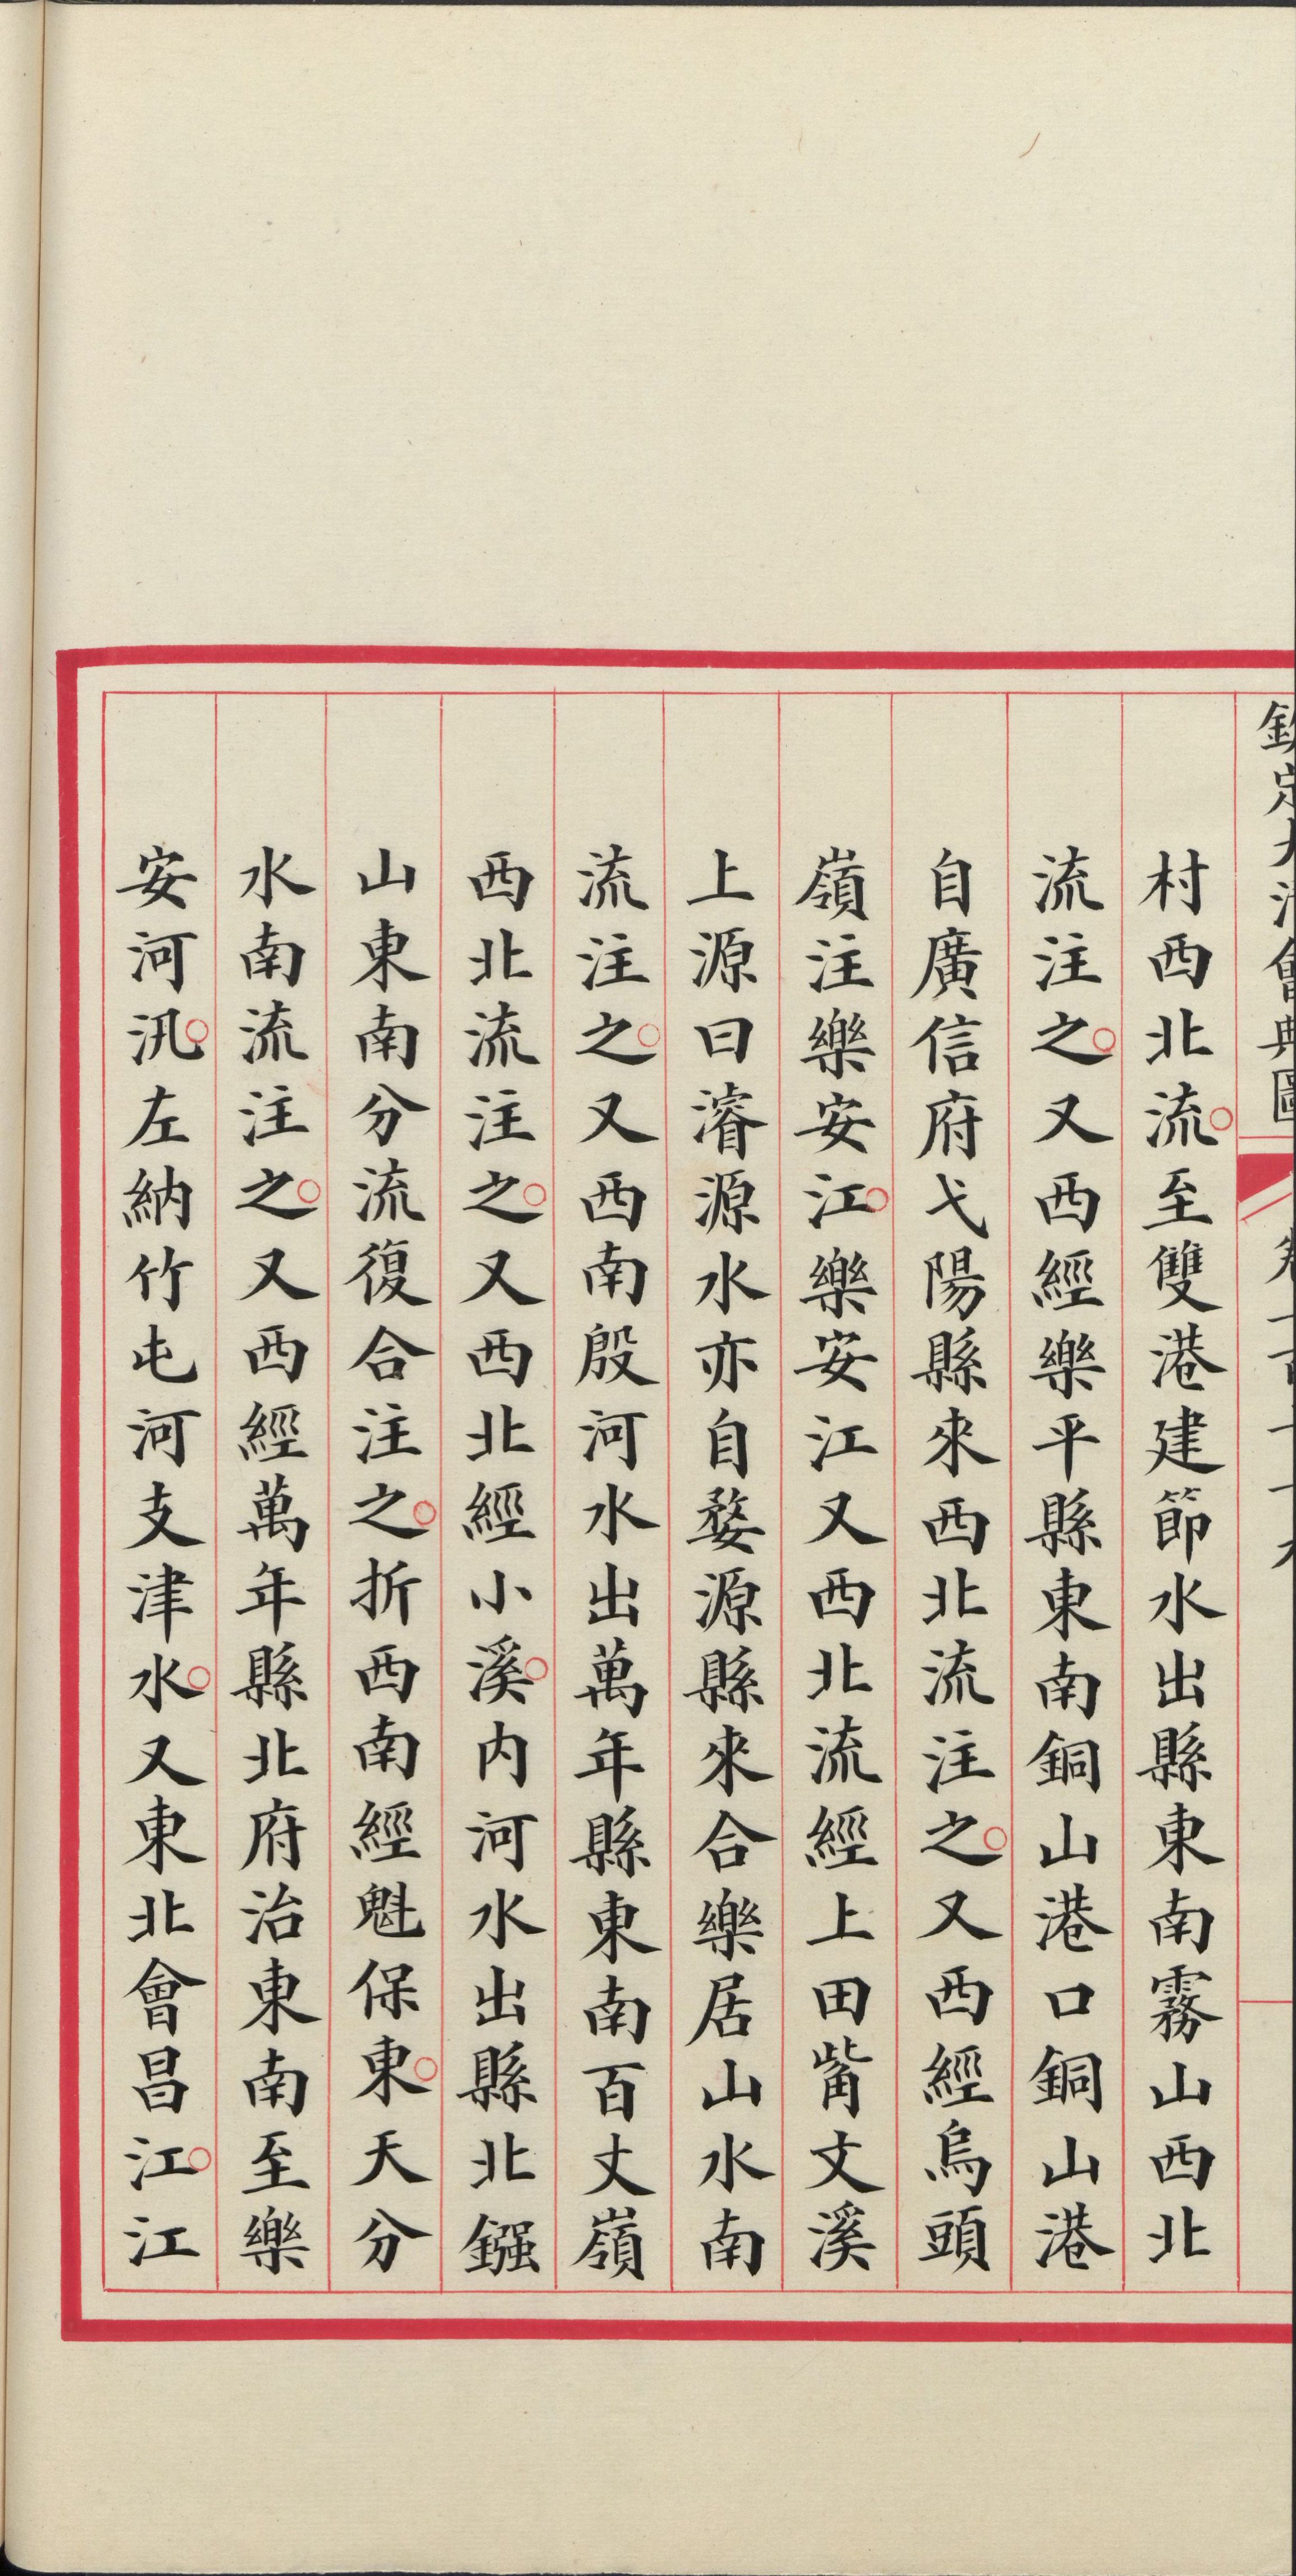 欽定大清會典圖
村西北流至雙港建節水出縣東南霧山西北
流注之又西經樂平縣東南銅山港口銅山港
自廣信府弋陽縣來西北流注之又西經烏頭
嶺注樂安江樂安江又西北流經上田觜文溪
上源曰濬源水亦自婺源縣來合樂居山水南
流注之又西南殷河水出萬年縣東南百丈嶺
西北流注之又西北經小溪內河水出縣北鏹
山東南分流復合注之折西南經魁保東天分
水南流注之又西經萬年縣北府治東南至樂
安河汛左納竹屯河支津水又東北會昌江江